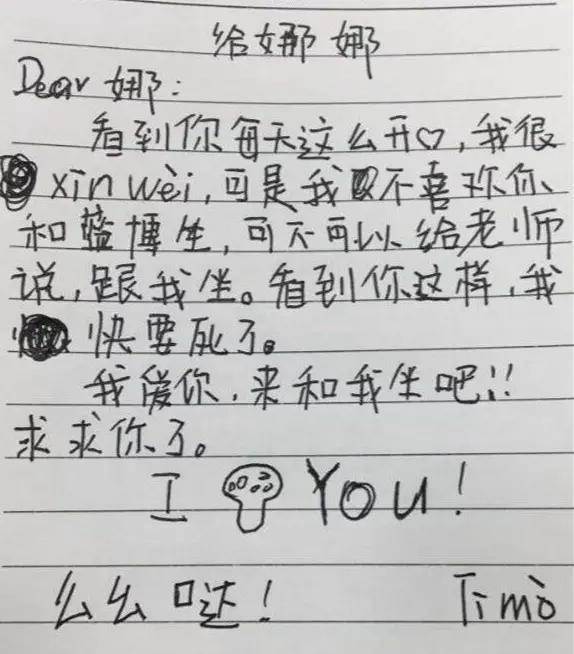 给娜娜
Dear 娜:
看到你每天这么开♡,我很
xin wèi,可是我不喜欢你
和蓝博生,可不可以给老师
说,跟我坐。看到你这样,我
快要死了。
我爱你,来和我坐吧!!
求求你了。
I You!
么么哒! Timo